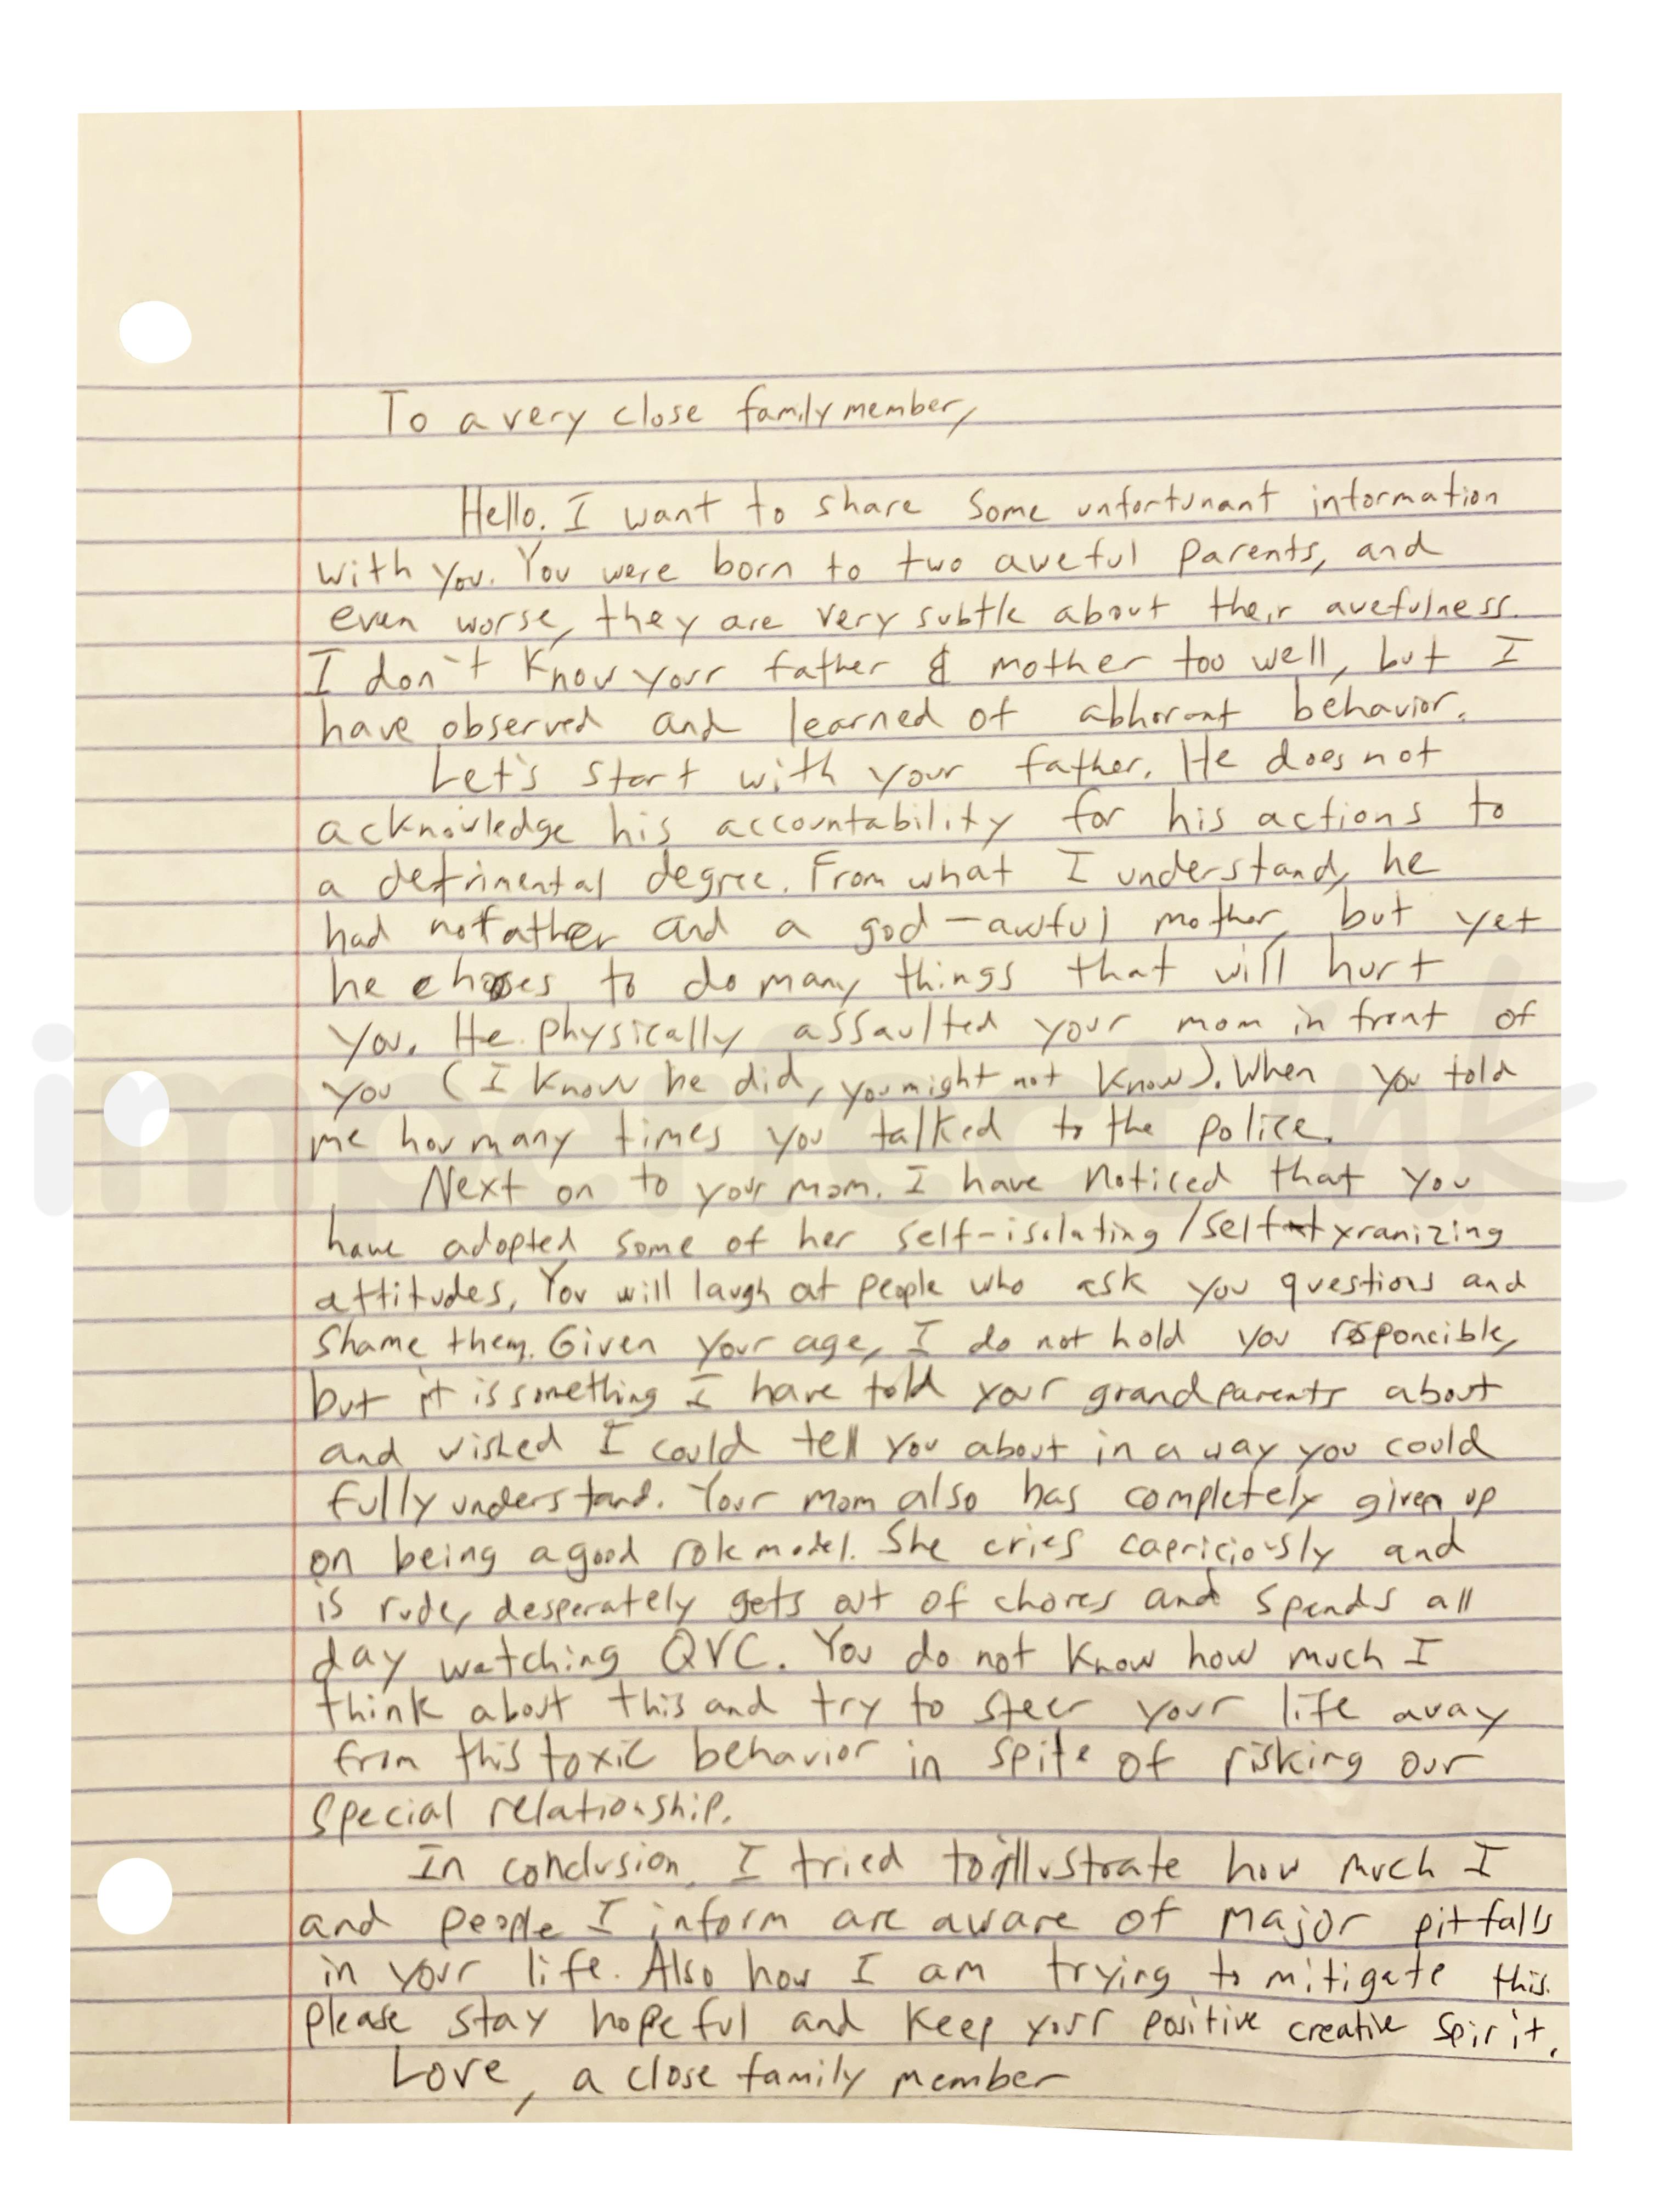 To a very close family member,
Hello. I want to share some unfortunant information
with you. You were born to two aweful parents, and
even worse, they are very subtle about their awefulness.
I don't know your father & mother too well, but I
have observed and learned of abhorant behavior.
Let's start with your father. He does not
acknowledge his accountability for his actions to
a detrimental degree. From what I understand, he
had no father and a god-awful mother, but yet
he choses to do many things that will hurt
you. He physically assaulted your mom in front of
you (I know he did, you might not know). When you told
me how many times you talked to the police.
Next on to your mom. I have noticed that you
have adopted some of her self-isolating/self tyranizing
attitudes. You will laugh at people who ask you questions and
shame them. Given your age, I do not hold you responcible,
but it is something I have told your grandparents about
and wished I could tell you about in a way you could
fully understand. Your mom also has completely given up
on being a good role model. She cries capriciously and
is rude, desperately gets out of chores and spends all
day watching QVC. You do not know how much I
think about this and try to steer your life away
from this toxic behavior in spite of risking our
special relationship.
In conclusion, I tried to illustrate how much I
and people I inform are aware of major pitfalls
in your life. Also how I am trying to mitigate this.
please stay hopeful and keep your positive creative spirit.
Love, a close family member
imperfect ink